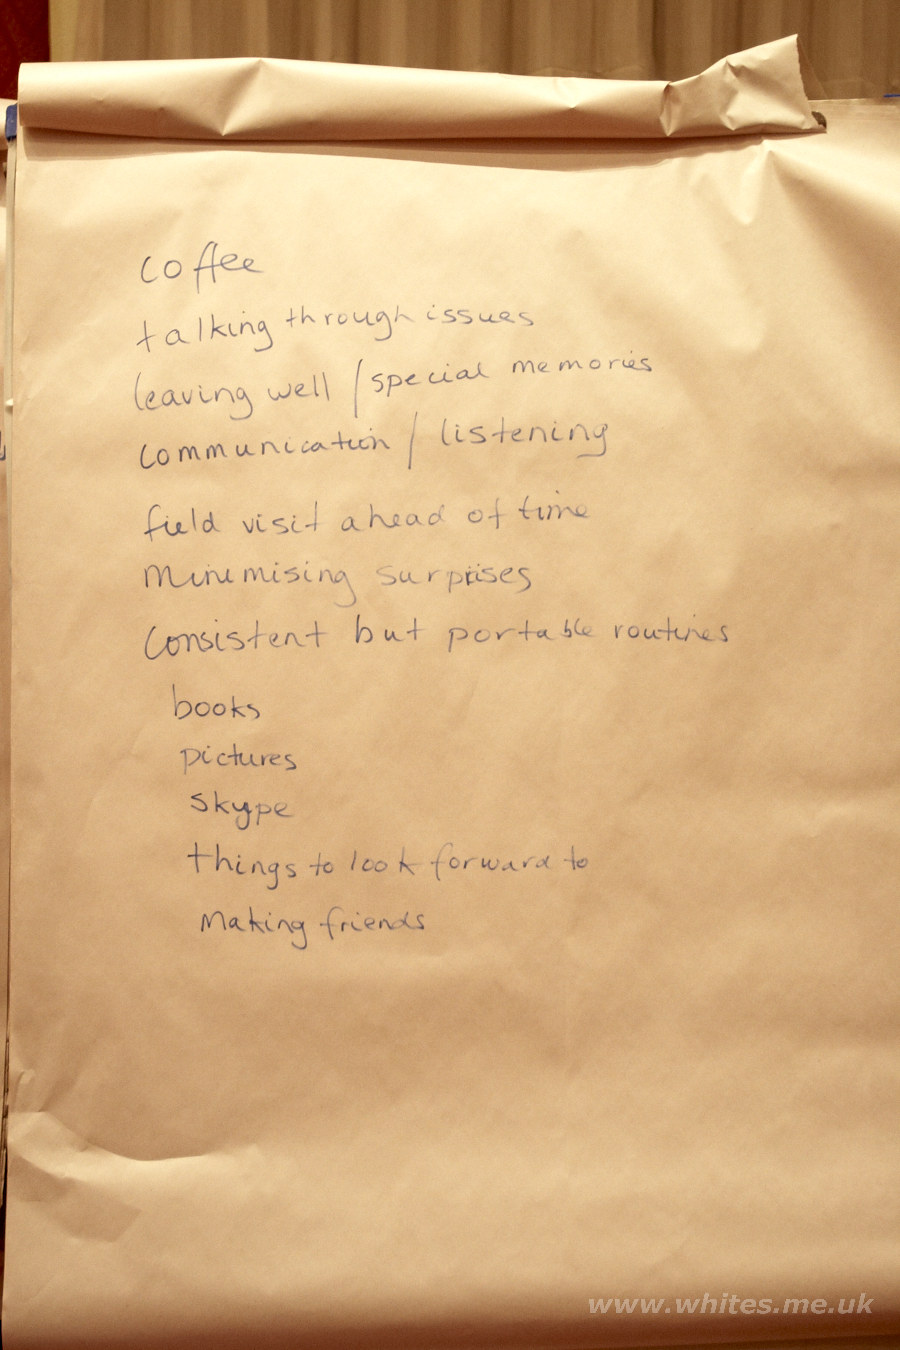 coffee
talking through issues
leaving well / special memories
communication / listening
field visit ahead of time
Minimising surprises
Consistent but portable routines
books
pictures
skype
things to look forward to
Making friends
www.whites.me.uk